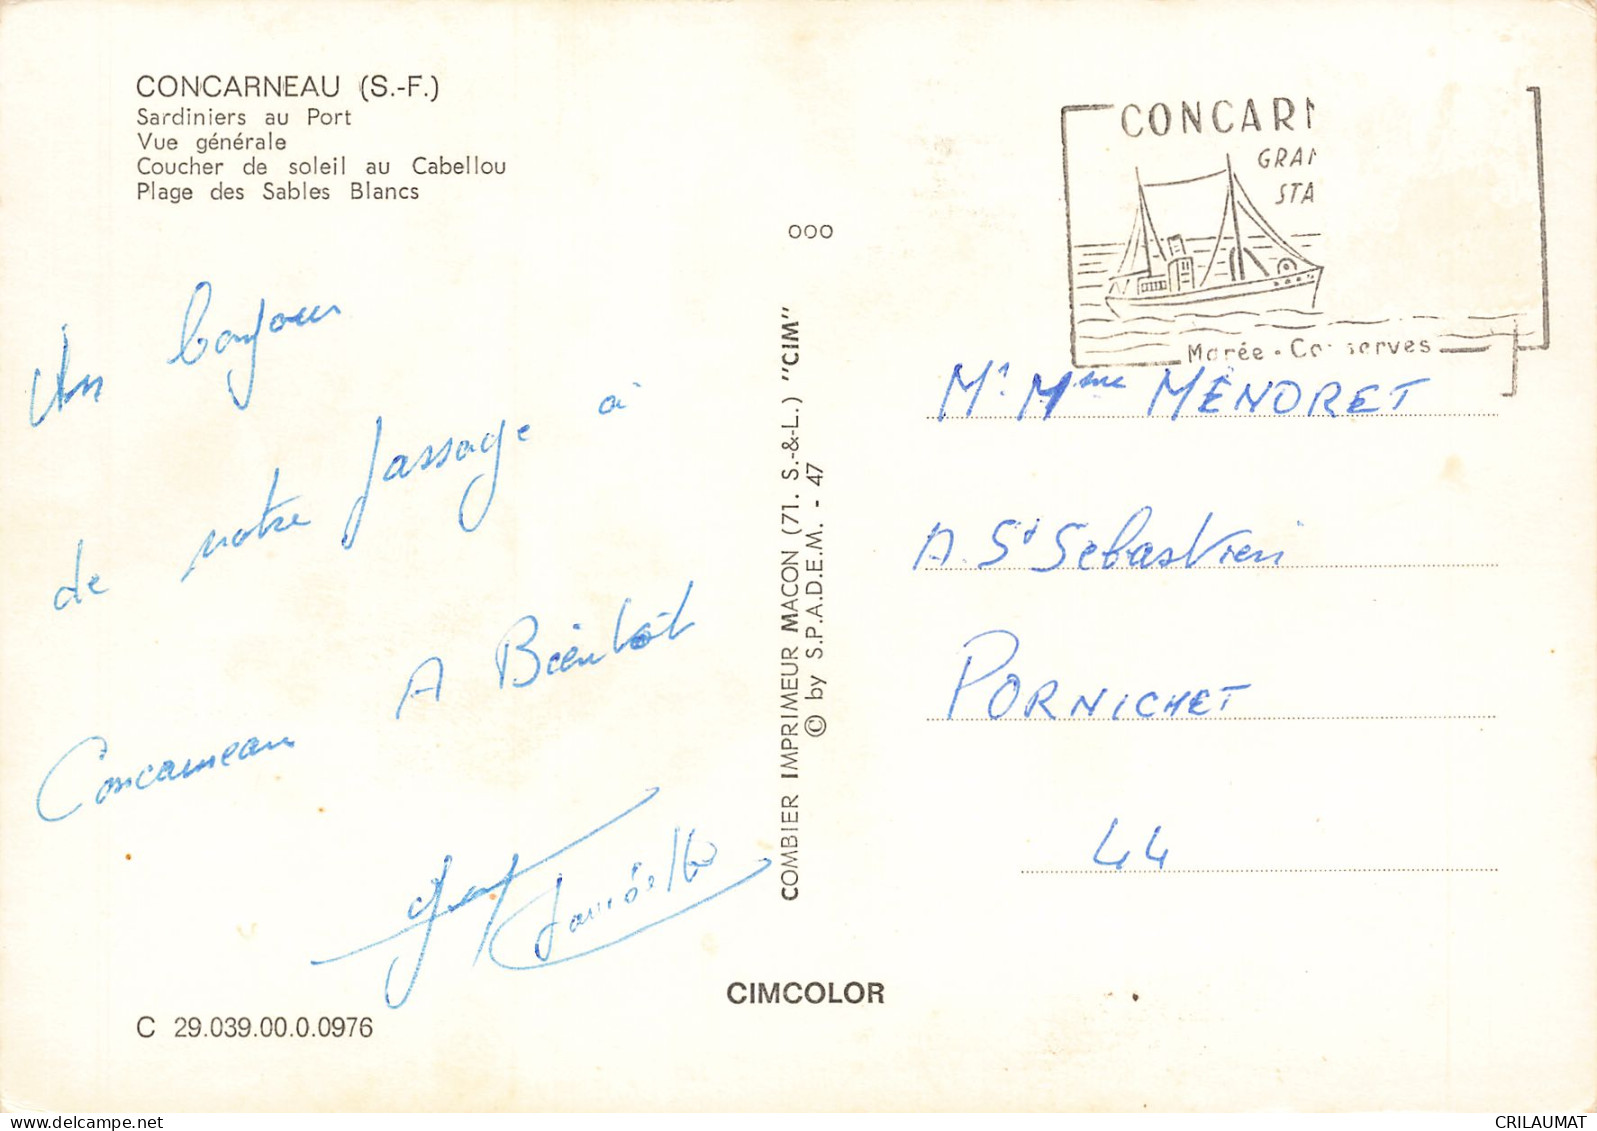 CONCARNEAU (S.-F.)
Sardiniers au Port
Vue générale
Coucher de soleil au Cabellou
Plage des Sables Blancs
Un bonjour
de notre passage à
Concarneau A Bientôt
C 29.039.00.0.0976
OOO
COMBIER IMPRIMEUR MACON (71. S.-&-L.) "CIM"
© by S.P.A.D.E.M. - 47
CIMCOLOR
CONCAR
GRA
STA
Marée - Conserves
Mr Mme MENORET
A. St Sebastien
PORNICHET
44
CRILAUMAT